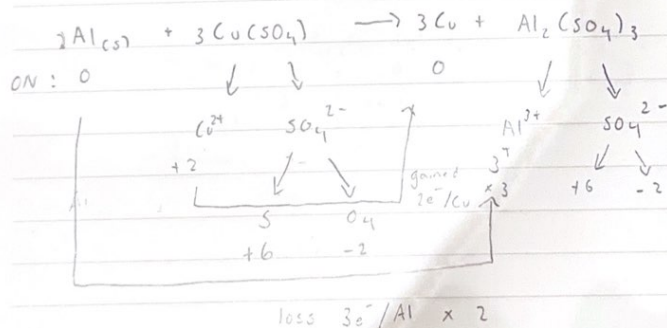 2Al(s) + 3Cu(SO4) → 3Cu + Al2(SO4)3
ON : 0 0
Cu2+ SO4 2- Al3+ SO4 2-
+2 gained 3+ +6 -2
2e-/Cu × 3
S O4
+6 -2
loss 3e-/Al × 2